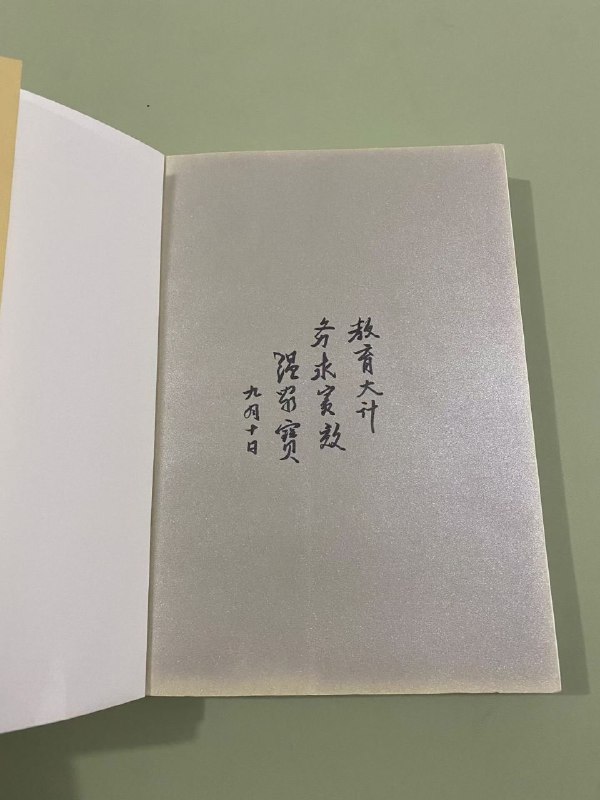 教育大计
务求实效
温家宝
九月十日